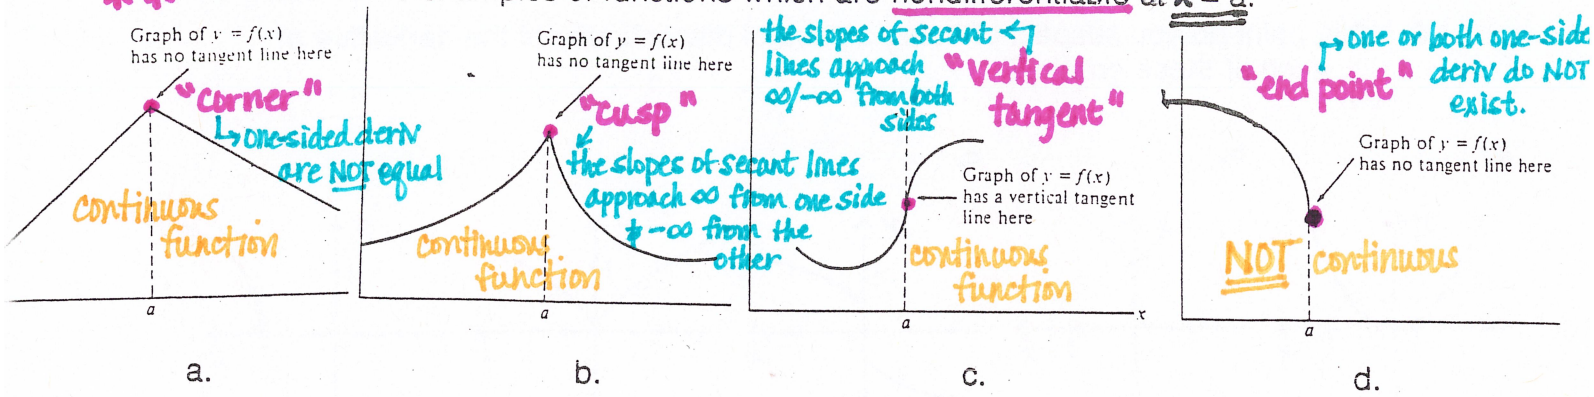 functions which are nondifferentiable at x = a.
Graph of y = f(x)
has no tangent line here
"corner"
↳one-sided deriv
are NOT equal
continuous
function
a
a.
Graph of y = f(x)
has no tangent line here
"cusp"
the slopes of secant lines
approach ∞ from one side
-∞ from the
other
continuous
function
a
b.
the slopes of secant
lines approach
∞/-∞ from both
sides
"vertical
tangent"
Graph of y = f(x)
has a vertical tangent
line here
continuous
function
a
x
c.
"end point"
one or both one-side
deriv do NOT
exist.
Graph of y = f(x)
has no tangent line here
NOT continuous
a
d.